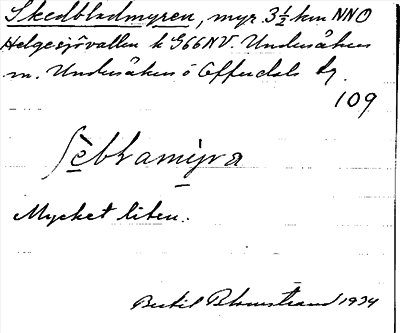 Skedbladmyren, myr 3½ km NNO
Helgesjövallen k G66NV. Undersåkers
sn. Undersåkers o Offerdals tg.
109
Mycket liten.
Bertil Blomstrand 1934